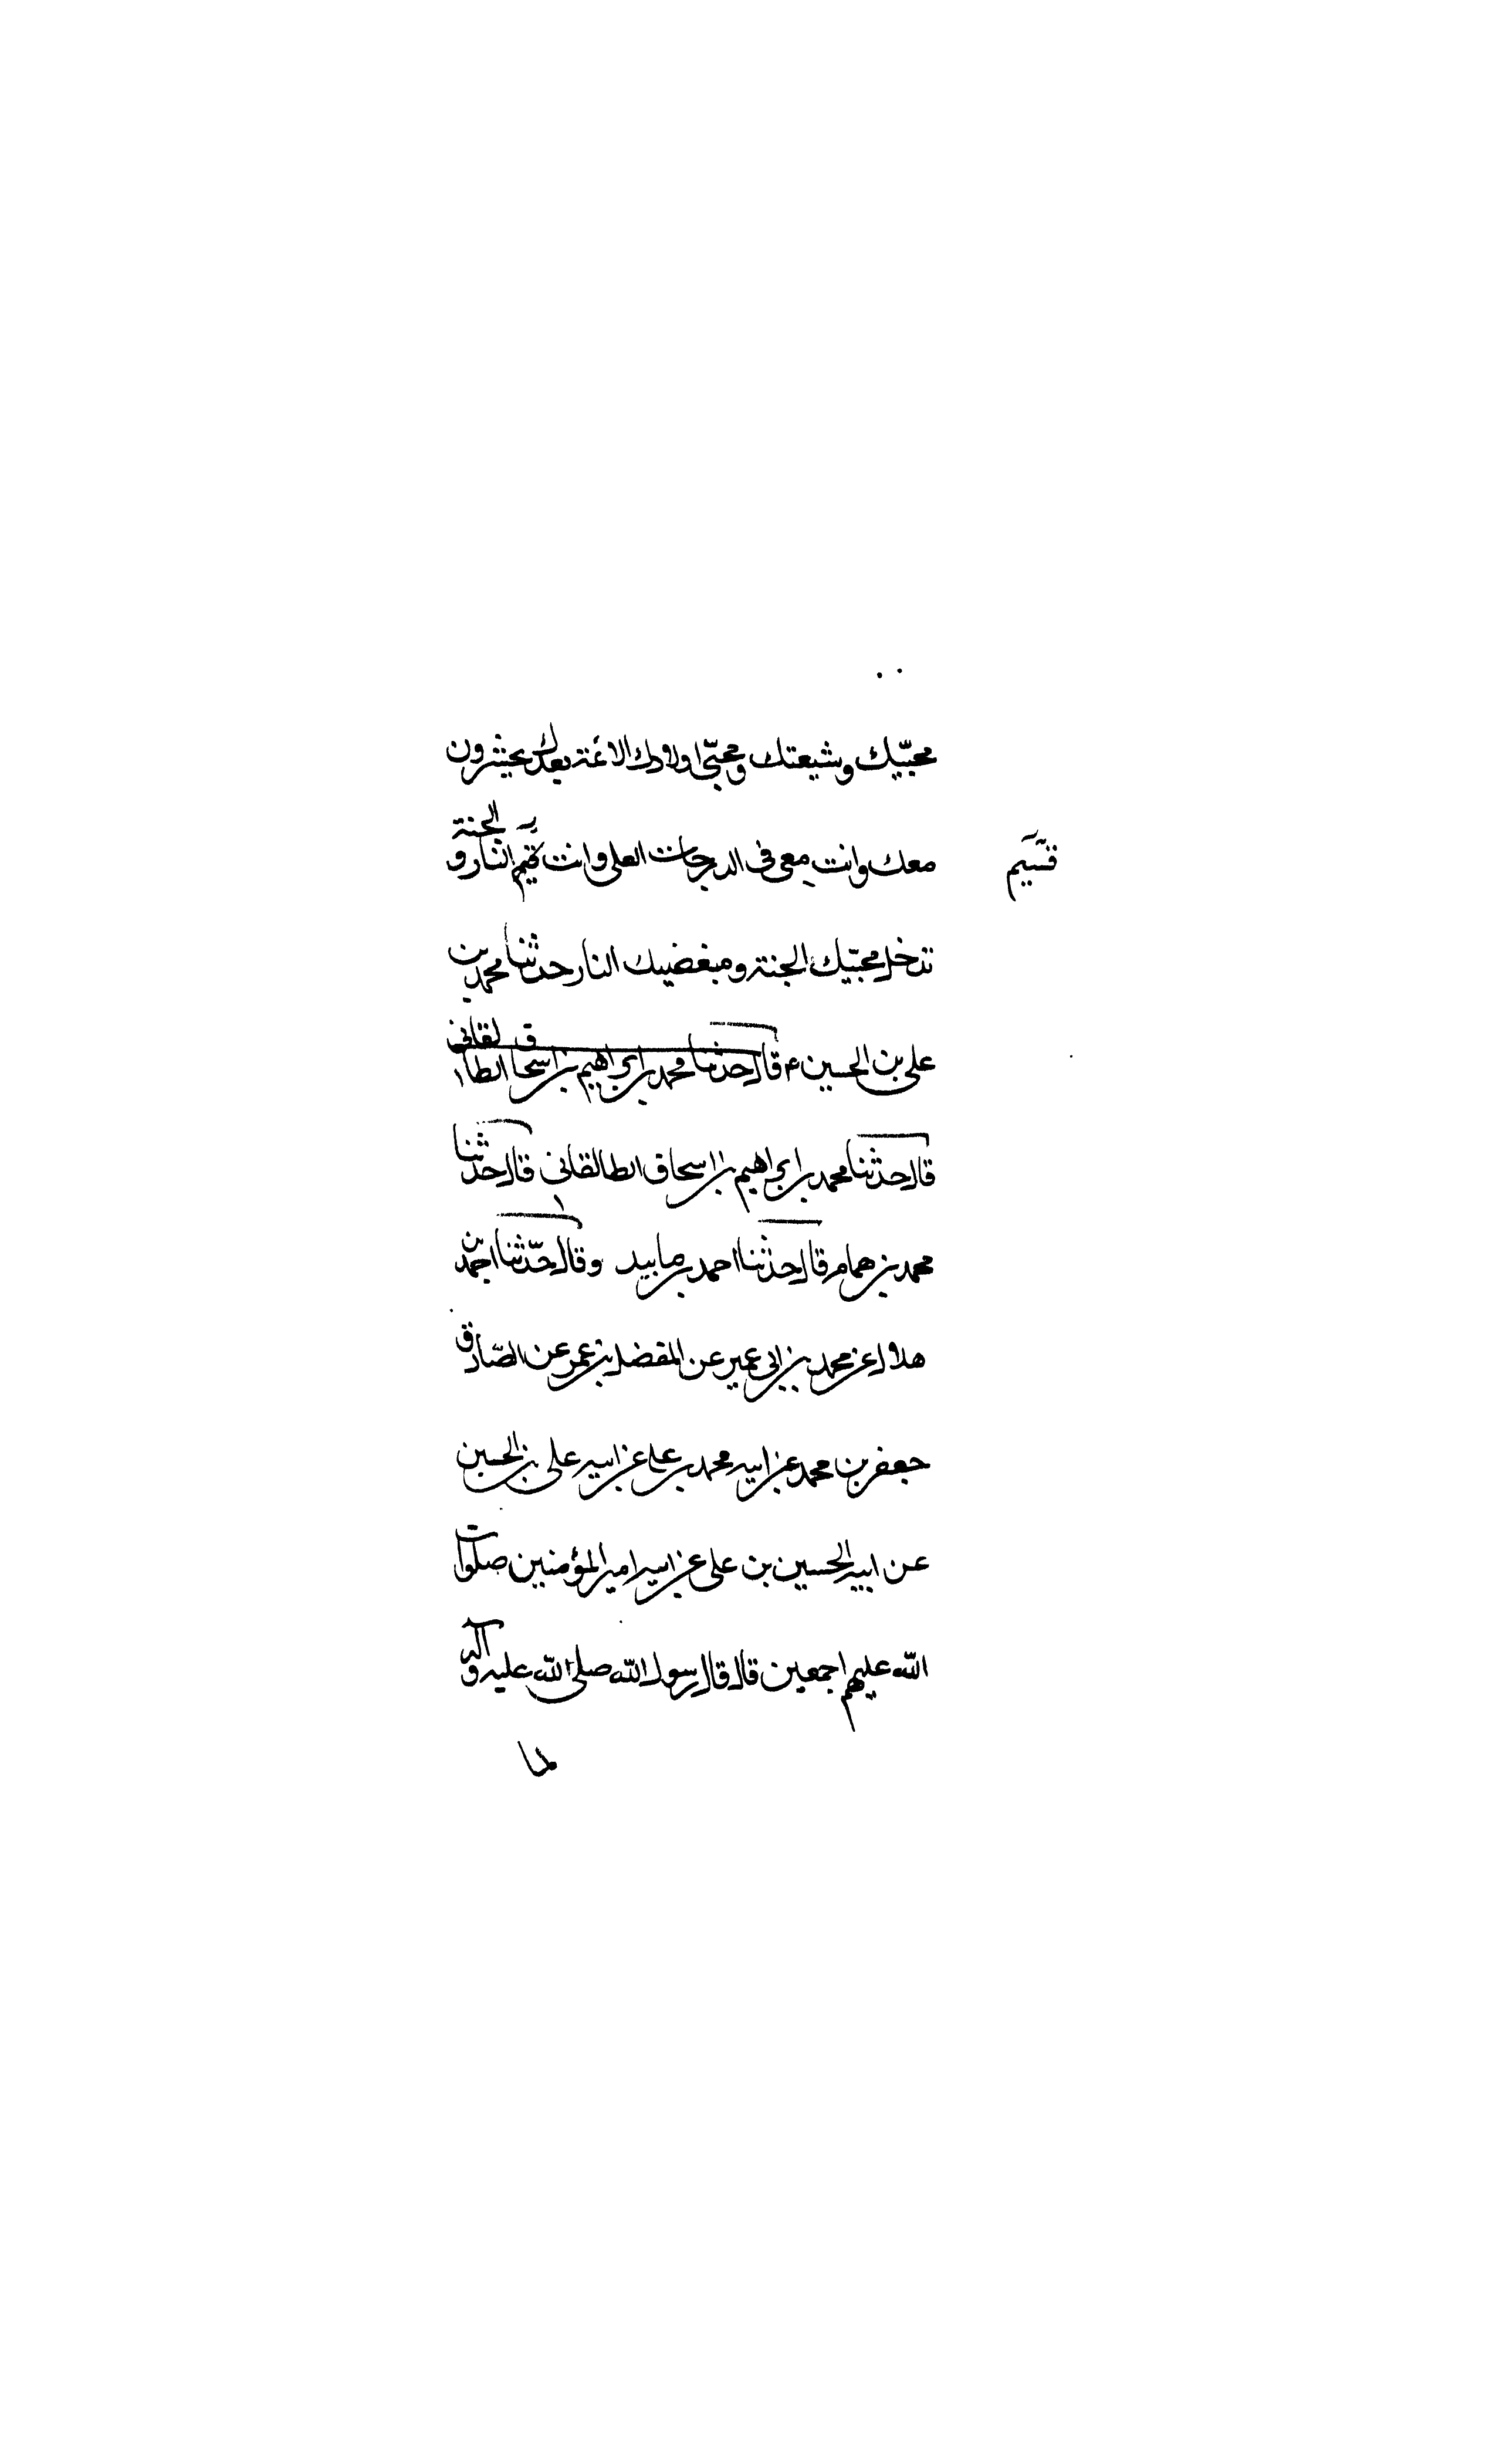 محبّيك وشيعتك ومحبّى اولادك الائمة بعدك يحشرون
معك وانت معى فى الدرجات العلى وانت قسيم النار و الجنة
قسيم
تدخل محبّيك الجنة ومبغضيك النار حدثنا محمد بن
على بن الحسين ع قال حدثنا محمد بن ابراهيم بن اسحاق الطالقانى
قال حدثنا محمد بن ابراهيم بن اسحاق الطالقانى قال حدثنا
محمد بن همام قال حدثنا احمد بن مابيد وقال حدّثنا احمد بن
هلال عن محمد بن ابى عمير عن المفضل بن عمر عن الصّادق
جعفر بن محمد عن ابيه محمد بن على عن ابيه على بن الحسين
عن ابيه الحسين بن على عن ابيه امير المؤمنين صلوات
الله عليهم اجمعين قال قال رسول الله صلى الله عليه وآله
لما